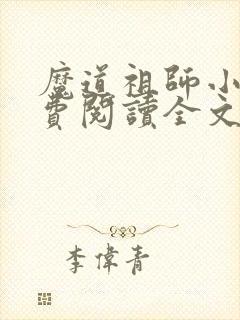 魔道祖師小
費閱讀全文
李偉青